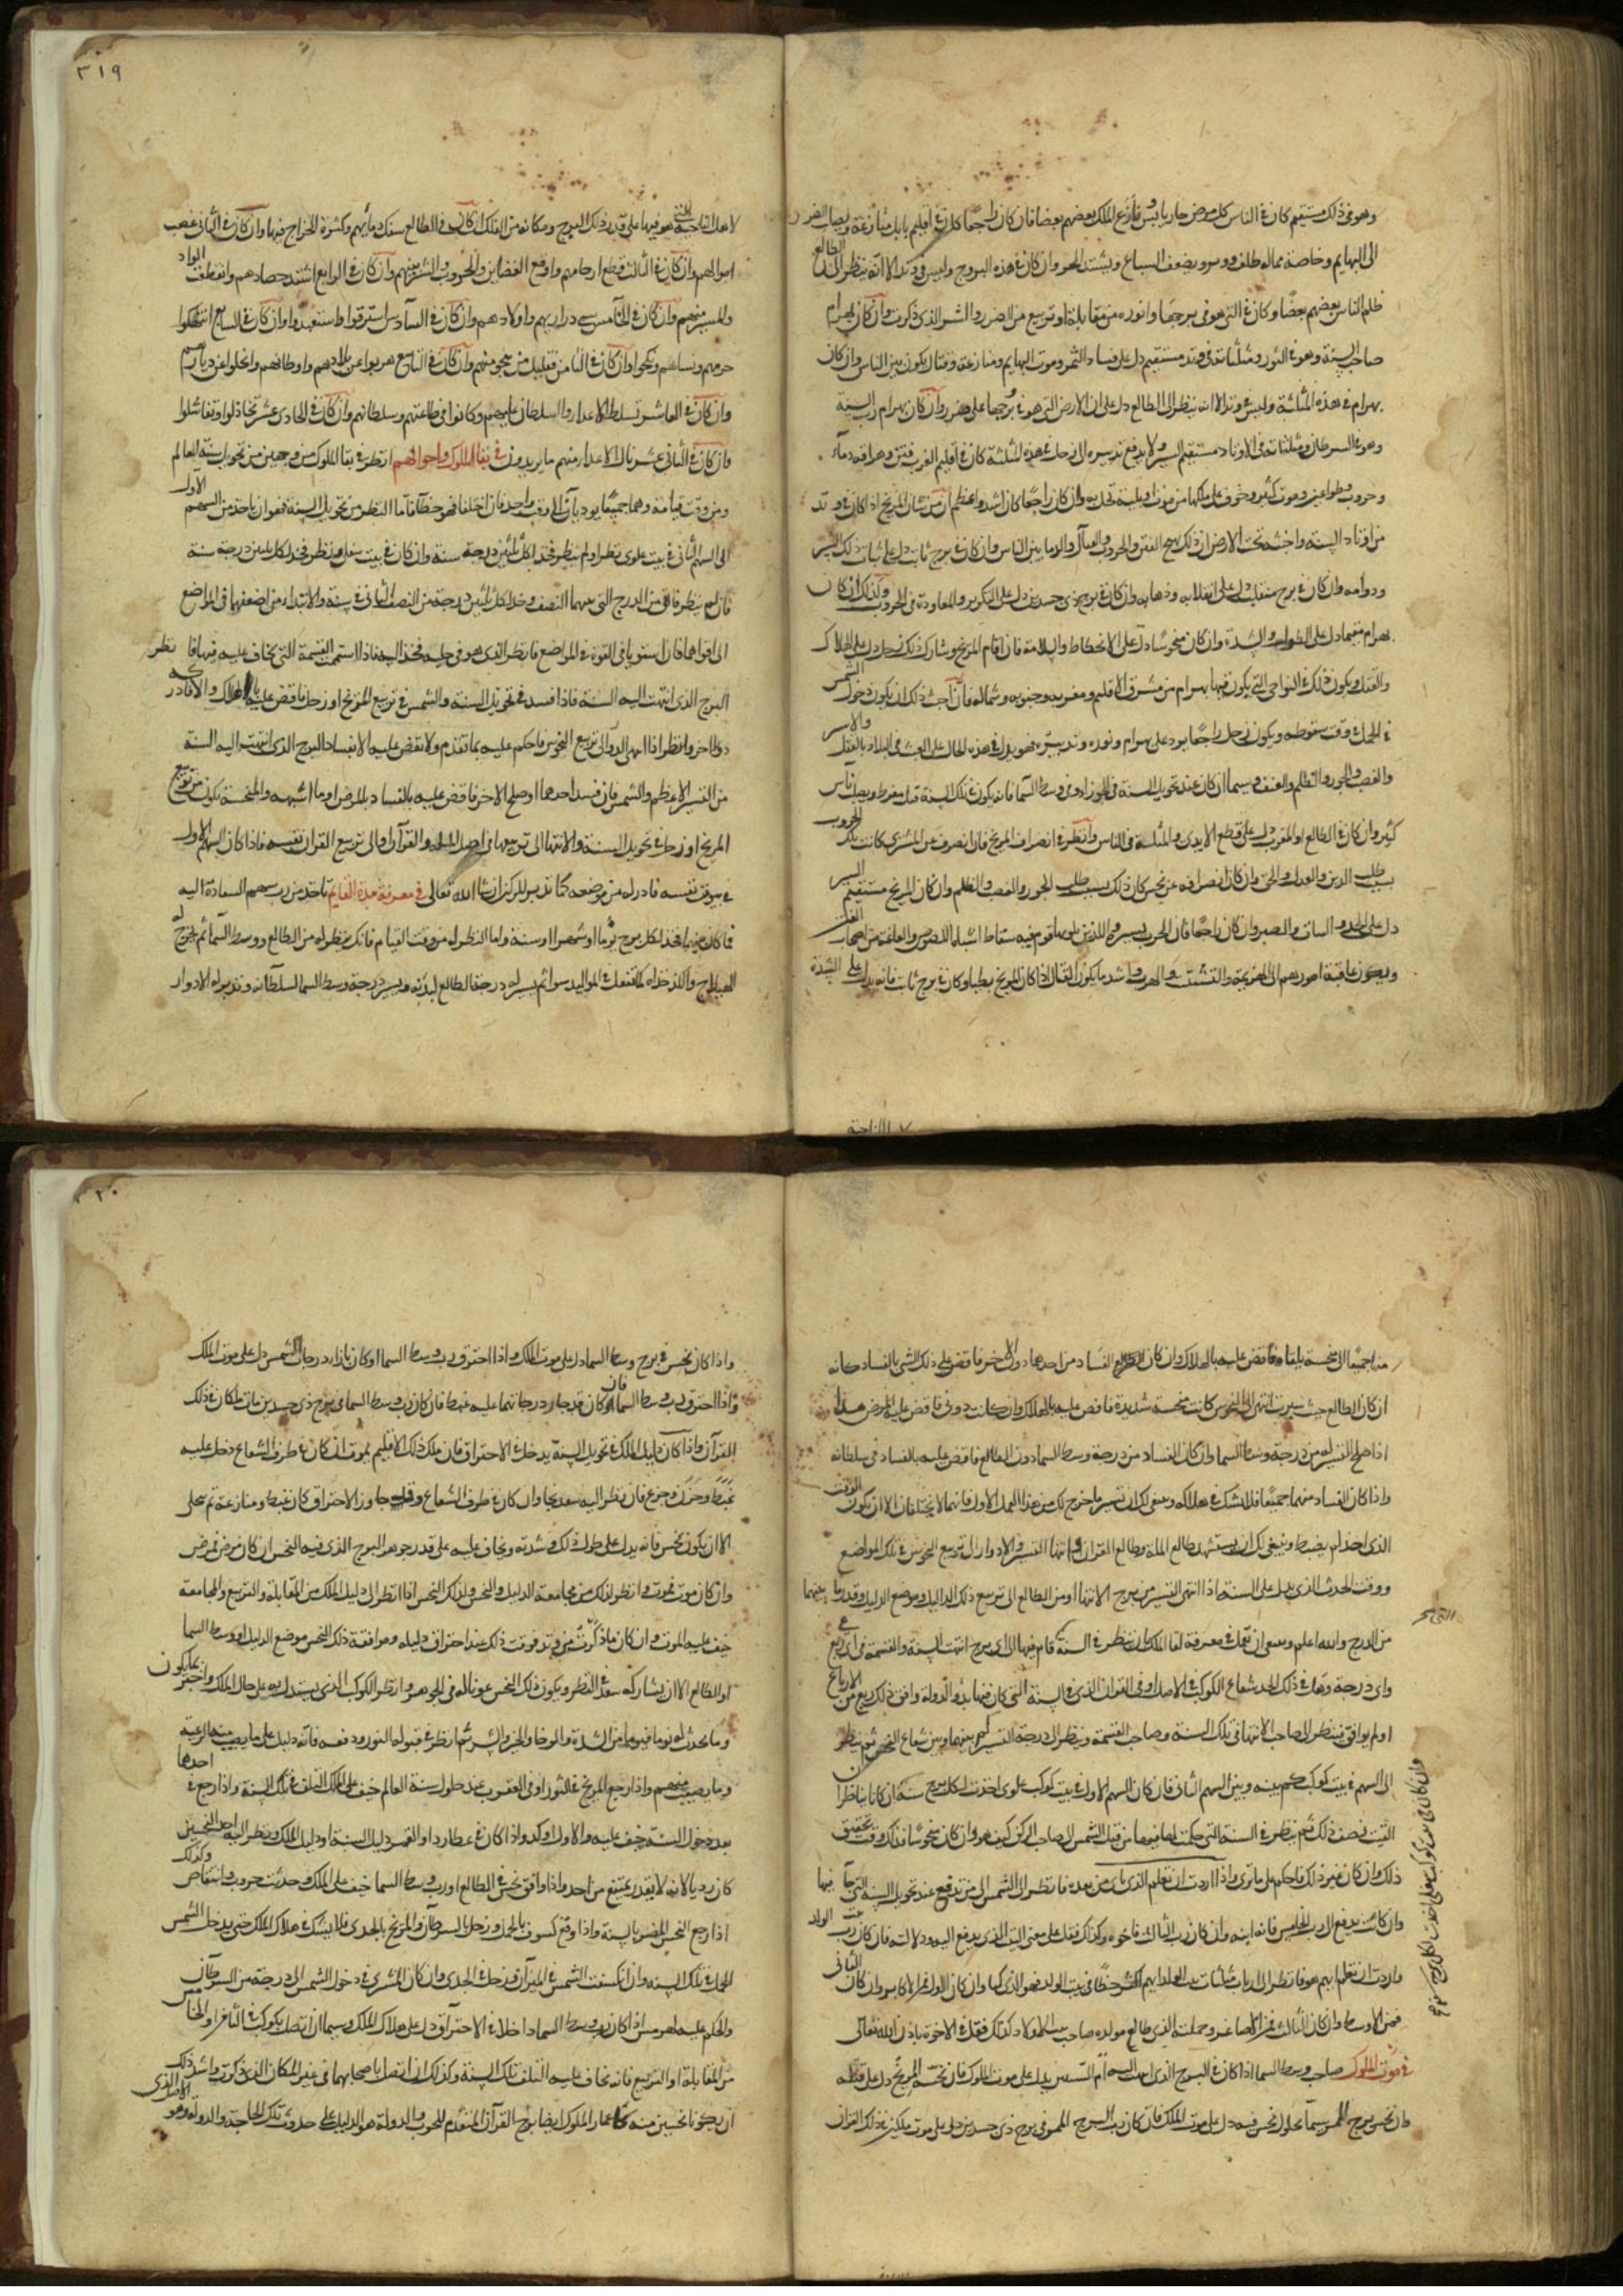 وهو في ذلك مستقيم كان في الناس كل مرض حار يابس ونازع الملك بعضهم بعضا فان كان راجعا كان في اقليم بابل منازعة
الى البهايم وخاصة ماله ظلف ويضعف السباع ويشتد الحر وان كان في هذه البروج وليس في وتد الا انه ينظر الى الطالع
ظلم الناس بعضهم بعضا وكان في التي هو في برجها وانوره من مقابلة او تربيع من الضرر والشر الذي ذكرت وان كان بهرام
صاحب السنة وهو في الثور ومثلثاته في وتد مستقيم دل على فساد الثمر وموت البهايم ومنازعة وقتال يكون بين الناس وان كان
بهرام في هذه المثلثة وليس في وتد الا انه ينظر الى الطالع دل على ان الارض التي هو في برجها على ضرر وان كان بهرام رب السنة
وهو في السرطان ومثلثاته في الاوتاد مستقيم السير ولا يدفع تدبيره الى زحل في هذه المثلثة كان في اقليم الغرب فتن وهراقة دماء
وحروب وطواعين وموت كثير وخوف على ملكها من موت او بلية تحل به وان كان راجعا كان اشد واعظم ان من شان المريخ اذا كان في وتد
من اوتاد السنة واخشه تحت الارض ان ذلك يهيج الفتن والحروب والقتال والدما بين الناس وان كان في برج ثابت دل على ثبات ذلك الشر
ودوامه وان كان في برج منقلب دل على انقلابه وذهابه وان كان في برج ذي جسدين دل على التكرير والمعاودة في الحروب وكذلك ان كان
بهرام مقيما دل على الطول والشدة وان كان منحوسا دل على الانحطاط والسلامة فان اقام المريخ وشارك ذلك زحل دل على الهلاك
والقتل ويكون ذلك في النواحي التي يكون فيها بهرام من مشرق الاقليم ومغربه وجنوبه وشماله فان اخبث ذلك ان يكون دخول الشمس
في الحمل في وقت سقوطه ويكون زحل راجعا يرد على بهرام ونوره وتدبيره فهو يدل في هذه الحال على العبث في البلاد بالقتل والاسر
والغصب والجور والظلم والعنف وسيما ان كان عند تحويل السنة في الجوزاء وفي وسط السماء فانه يكون في تلك السنة قتل مفرط ويصلب ناس
كثير وان كان في الطالع او المغرب دل على قطع الايدي والمثلة في الناس وانظر في انصراف المريخ فان انصرف عن المشتري كانت تلك الحروب
بسبب طلب الدين والعدل والحق وان كان انصرافه عن نحس كان ذلك بسبب طلب الجور والغصب والظلم وان كان المريخ مستقيم السير
دل على الجد والثبات والصبر وان كان راجعا فان الحرب يسيرة والذين يلونها قوم فيه سقاط اشباه اللصوص
ويكون عاقبة امورهم الى الهزيمة والتشتت والهرب واشد ما يكون القتال اذا كان المريخ بطيا وكان في برج ثابت فانه يدل على الشدة
لاهل الناحية
٣١٩
لاهل الناحية التي هو فيها على قدر ذلك البرج ومكانه من الفلك ان كان في الطالع سفك دمائهم وكثرة الخراج فيها وان كان في الثاني غصب
اموالهم وان كان في الثالث قطع ارحامهم واوقع الضغاين والحروب والشر بينهم وان كان في الرابع اشتد حصادهم وانقطعت المواد
والمير عنهم وان كان في الخامس سبى ذراريهم واولادهم وان كان في السادس استرقوا واستعبدوا وان كان في السابع انتهكوا
حرمهم ونساهم ونكحوا وان كان في الثامن فقليل من ينجو منهم وان كان في التاسع هربوا عن بلادهم واوطانهم وانجلوا عن ديارهم
وان كان في العاشر تسلط الاعدا والسلطان عليهم وكانوا في طاعتهم وسلطانهم وان كان في الحادي عشر تخاذلوا وتفاشلوا
وان كان في الثاني عشر نال الاعدا منهم ما يريدون في بقا الملوك واحوالهم انظر في بقا الملوك من وجهين من تحويل سنة العالم
ومن وقت قيامه وهما جميعا يوديان الى وقت واحد فان اختلفا فهو خطا فاما النظر من تحويل السنة فهو ان ياخذ من السهم الاول
الى السهم الثاني في بيت علوي نظر او لم ينظر فخذ لكل ثلثين درجة سنة وان كان في بيت سفلي ونظر فخذ لكل ثلثين درجة سنة
فان لم ينظر فالق من الدرج التي بينهما النصف وخذ لكل ثلثين درجة من النصف الباقي سنة والابتداء من اضعفهما في المواضع
الى اقواهما فان استويا في القوة في المواضع فانظر الذي هو في حلبه فخذ اليه فاذا استتمت القسمة التي يخاف عليه فيها فانظر
البرج الذي انتهت اليه السنة فاذا فسد في تحويل السنة والشمس في تربيع المريخ او زحل فاقض عليه بالهلاك والا فادر
دورا اخر وانظر اذا انتهى الدور الى تربيع النحوس فاحكم عليه بما تقدم ولا تقض عليه الا بفساد البرج الذي انتهت اليه السنة
من النير الاعظم والشمس فان فسد احدهما وصلح الاخر فاقض عليه بالفساد بالمرض او ما اشبهه والمنحسة يكون من تربيع
المريخ او زحل في تحويل السنة والانتها الى تربيعهما في اصل الملة والقرآن او الى تربيع القران نفسه فاذا كان السهم الاول
في بيوت نفسه فادر له من موضعه كما تدير للمركز ان شا الله تعالى في معرفة مدة القايم تاخذ من رب سهم السعادة اليه
فما كان بينهما فخذ لكل برج يوما او شهرا او سنة واما النظر له من وقت القيام فانك تنظر له من الطالع ووسط السما ثم تخرج له
الهيلاج والكدخداه كما تفعل في المواليد سواء ثم يسير له درجة الطالع لبدنه ويسير درجة وسط السما لسلطانه وتدير له الادوار
منها جميعا الى منحسة بلغناها فاقض عليه بالهلاك وان كان الفساد من احدهما دون الاخر فاقض على ذلك الشي بالفساد كانه
ان كان الطالع حيث سيرت انتهى الى النحوس كانت منحسة شديدة فاقض عليه بالهلاك وان كانت دون فاقض عليه بالمرض هذا
اذا صلح التسيير له من درجة وسط السما وان كان الفساد من درجة وسط السما دون الطالع فاقض عليه بالفساد في سلطانه
واذا كان الفساد منهما جميعا فلا تشك في هلاكه وينبغي لك ان تسير ما خرج لك من هذا العمل الاول فانهما لا يختلفان الا ان يكون الوقت
الذي اخذ لم يضبط وينبغي لك ان يستشهد طالع الملة وطالع القران وانتها التسيير والادوار الى تربيع النحوس في تلك المواضع
ووقت الحدث الذي يدل على السنة اذا انتهى التسيير من برج الانتها او من الطالع الى تربيع ذلك الدليل وموضع الدليل وقدر ما بينهما
من الدرج والله اعلم وينبغي ان تعمل في معرفة بقا الملك ان ينظر في السنة كم قام فيها الى اي برج انتهت السنة والقسمة في اي ربع
واي درجة وهل في ذلك الحد شعاع الكوكب في الاصل او في القران الذي في السنة التي كان فيها بدو الدولة وافق ذلك ربع من الارباع
او لم يوافق فينظر الى صاحب الانتها في تلك السنة وصاحب القسمة وينظر الى درجة التسيير كم بينهما وبين شعاع النحس ثم ينظر
الى السهم في بيت كوكب كم بينه وبين السهم الثاني فان كان السهم الاول في بيت كوكب علوي اخذت لكل برج سنة ان كانا تناظرا
القيت نصف ذلك ثم ينظر في السنة التي حكمت لصاحبها من قبل الشمس الى صاحب المركز كيف هو وان كان منحوسا فذلك وقت تحقيق
ذلك وان كان غير ذلك فاحكم على ما ترى واذا اردت ان تعلم الذي يملك من بعده فانظر الى الشمس الى من تدفع عند تحويل السنة التي مات فيها
وان كانت يدفع الى رب الخامس فانه ابنه وان كان رب الثالث فاخوه وكذلك فقل على معنى البيت الذي يدفع اليه ودلالته فان كان رب بيت الولد
واردت ان تعلم ايهم هو فانظر الى ارباب مثلثات بيت الولد ايهم اكثر حظا في بيت الولد فهو الذي يملك وان كان الاول فمن الاكابر وان كان الثاني
فمن الاوسط وان كان الثالث فمن الاصاغر وجملته الذي طالع مولده صاحب بيت الاولاد كذلك فقل في الاخوة باذن الله تعالى
في موت الملوك صاحب وسط السما اذا كان في البرج الذي انتهت اليه السنة ثم التسيير يدل على موت الملوك فان نحسه المريخ دل على قتله
وان نحس برج الممر سيما بحلول نحس فيه دل على موت الملك فان كان رب البرج الممر في برج ذي جسدين دل على موت ملكين في ذلك القران
وان كان في بيت كوكب سفلي اخذت لكل برج شهرا
٣٢٠
واذا كان نحس في برج وسط السما دل على موت الملك واذا احترق رب وسط السما او كان بازاء درجات الشمس دل على موت الملك
واذا احترق رب وسط السما فان كان قد جاز درجاتهما عليه غبطا فان كان رب وسط السما في برج ذي جسدين مات ملكان في ذلك
القران واذا كان دليل الملك في تحويل السنة يدخل في الاحتراق فان ملك ذلك الاقليم يموت ان كان في طرف الشعاع دخل عليه
غبط وحزن وجزع فان نظر اليه سعد نجا وان كان في طرف الشعاع وقد جاوز الاحتراق كان غبط ومنازعة ثم تنجلي
الا ان يكون نحس فانه يدل على طول ذلك وشدته ويخاف عليه على قدر جوهر البرج الذي فيه النحس ان كان مرض فمرض
وان كان موت فموت وانظر لذلك من مجامعة الدليل والنحس وذلك النحس اذا نظر الى دليل الملك من المقابلة والتربيع والمجامعة
خيف عليه الموت وان كان ما ذكرت من وتد فوقت ذلك عند احتراق دليله وموافقة ذلك النحس موضع الدليل او وسط السما
او الطالع الا ان يشاركه سعد في النظر ويكون ذلك النحس عونا له في الجوهر وانظر الكوكب الذي يستدل به على حال الملك واخبر بما يكون
وما يحدث له يوما فيوما من الشدة والرخا والخير والشر ثم انظر في قبوله النور ودفعه فانه دليل على ما يصيب منه الرعية
وما يصيب منهم واذا رجع المريخ في الثور او في العقرب عند حلول سنة العالم خيف على الملك التلف في تلك السنة واذا رجع في احدهما
بعد دخول السنة خيف عليه والاول اوكد واذا كان في عطارد او القمر دليل السنة او دليل الملك ونظر اليه احد النحسين
كان رديا لانه لا يقدر يمتنع من احد واذا وافق نحس في الطالع او رب وسط السما خيف على الملك وحدثت حروب وانتقاض وكذلك
اذا رجع النحس المضر بالسنة واذا وقع كسوف بالحمل وزحل بالسرطان والمريخ بالجدي فلا يشك في هلاك الملك حتى يدخل الشمس
الحمل في تلك السنة وان انكسفت الشمس في الميزان وزحل في الجدي وان كان المشتري في دخول الشمس الى درجة من السرطان
والحكم عليه لهرمس اذا كان رب وسط السما داخلا في الاحتراق دل على هلاك الملك وسيما ان اتصل بكوكب في الثامن او الخامس
من المقابلة او التربيع فانه يخاف عليه التلف في تلك السنة وكذلك ان اتصل باصحابهما في غير المكان الذي ذكرت واشد ذلك
ان يكونا نحسين منه كما عمار الملوك ايضا برج القران المتقدم للحرب والدولة هو الدليل على حدوث تلك الحاجة والدولة وهو الاصل الذي